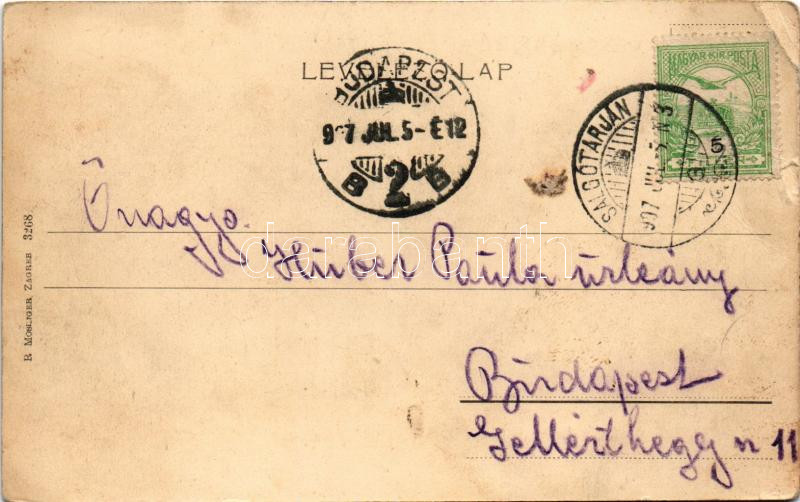 LEVELEZŐ-LAP
BUDAPEST
907 JUL. 5 - É12
B 2 B
MAGYAR KIR. POSTA
5
SALGÓTARJÁN
907 JUL
Őnagys.
Huber Paula úrleány
Budapest
Gellérthegy u 11
R. MOSINGER, ZAGREB 3268
darabanth